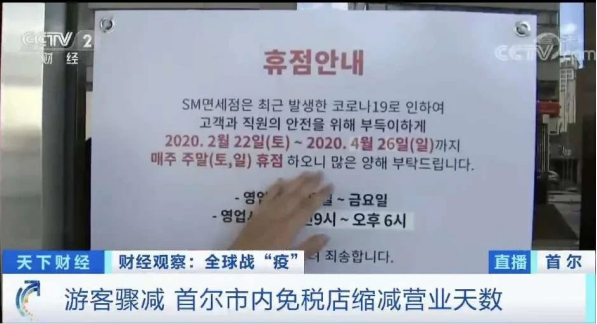 CCTV 2
财经
CCTV.com
휴점안내
SM면세점은 최근 발생한 코로나19로 인하여
고객과 직원의 안전을 위해 부득이하게
2020. 2월 22일(토) ~ 2020. 4월 26일(일)까지
매주 주말(토,일) 휴점 하오니 많은 양해 부탁드립니다.
- 영업 ~ 금요일
- 영업 9시 ~ 오후 6시
죄송합니다.
天下财经 财经观察：全球战“疫” 直播 首尔
游客骤减 首尔市内免税店缩减营业天数